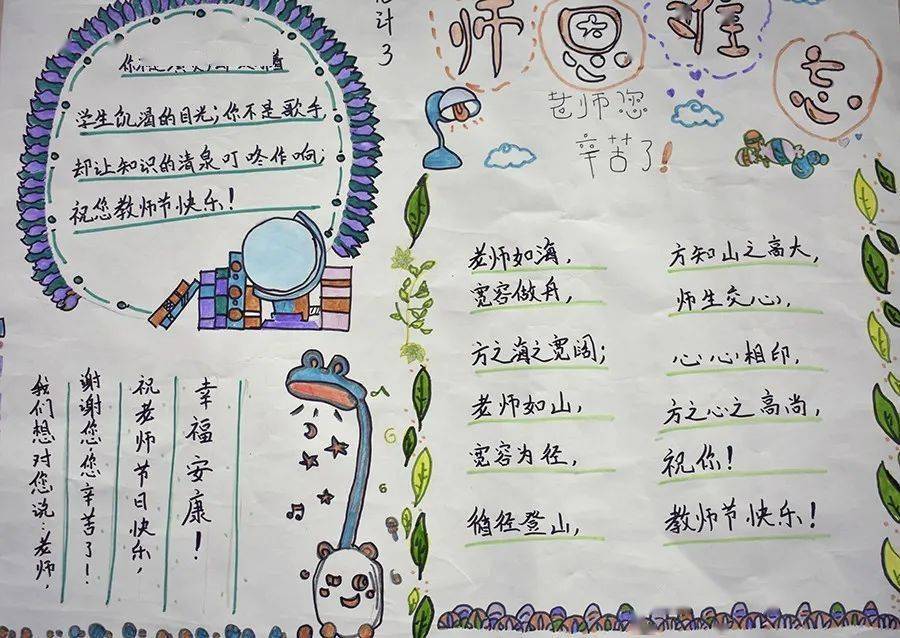 师恩难忘
老师您
辛苦了!
学生饥渴的目光;你不是歌手,
却让知识的清泉叮咚作响;
祝您教师节快乐!
我们想对您说:老师,
谢谢您,您辛苦了!
祝老师节日快乐,
幸福安康!
老师如海,
宽容做舟,
方之海之宽阔;
老师如山,
宽容为径,
循径登山,
方知山之高大,
师生交心,
心心相印,
方之心之高尚,
祝你!
教师节快乐!